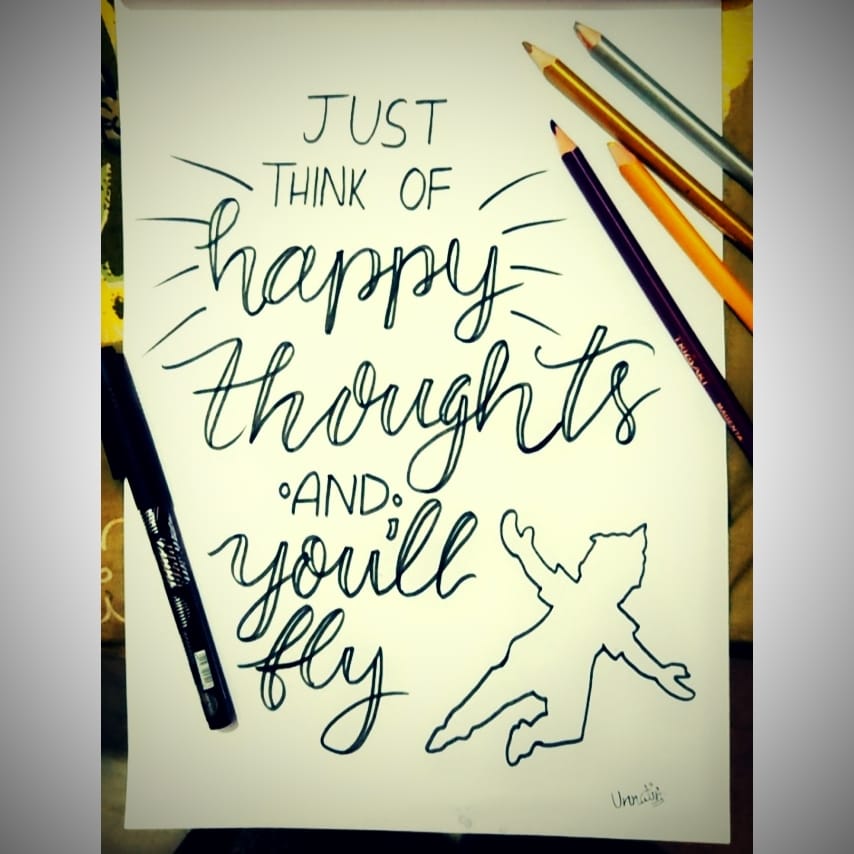 JUST
THINK OF
happy
thoughts
AND
you'll
fly
MAGENTA